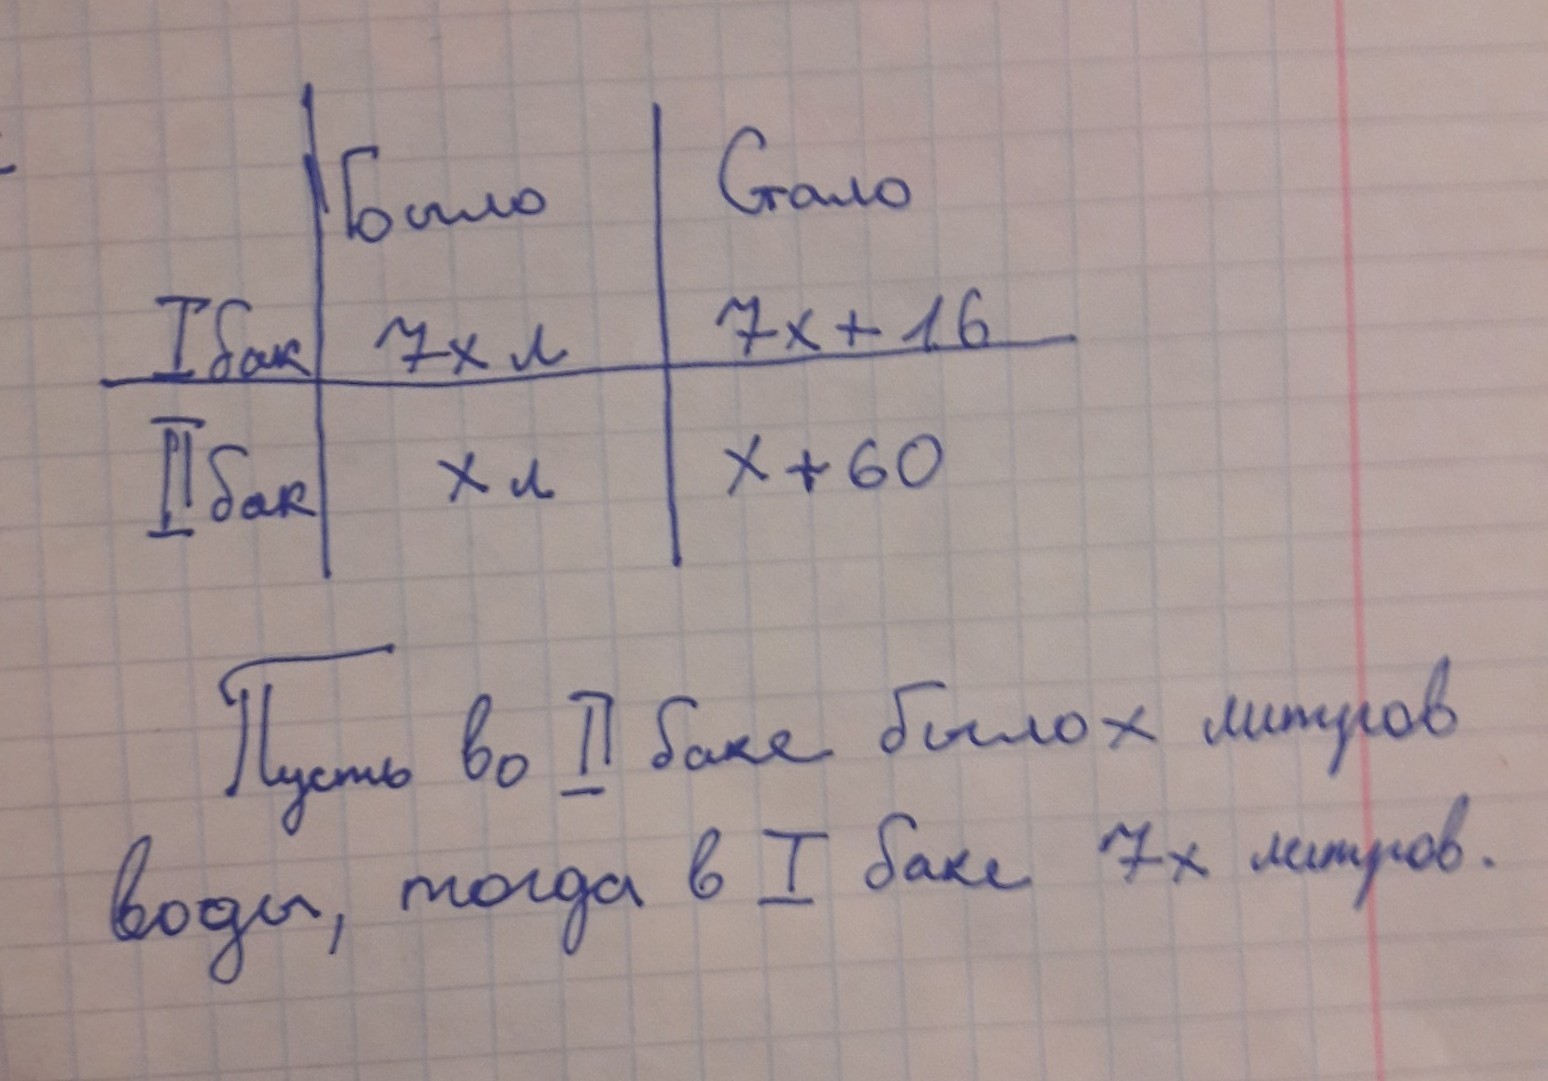 Было Стало
I бак 7x л 7x + 16
II бак x л x + 60
Пусть во II баке было x литров
воды, тогда в I баке 7x литров.